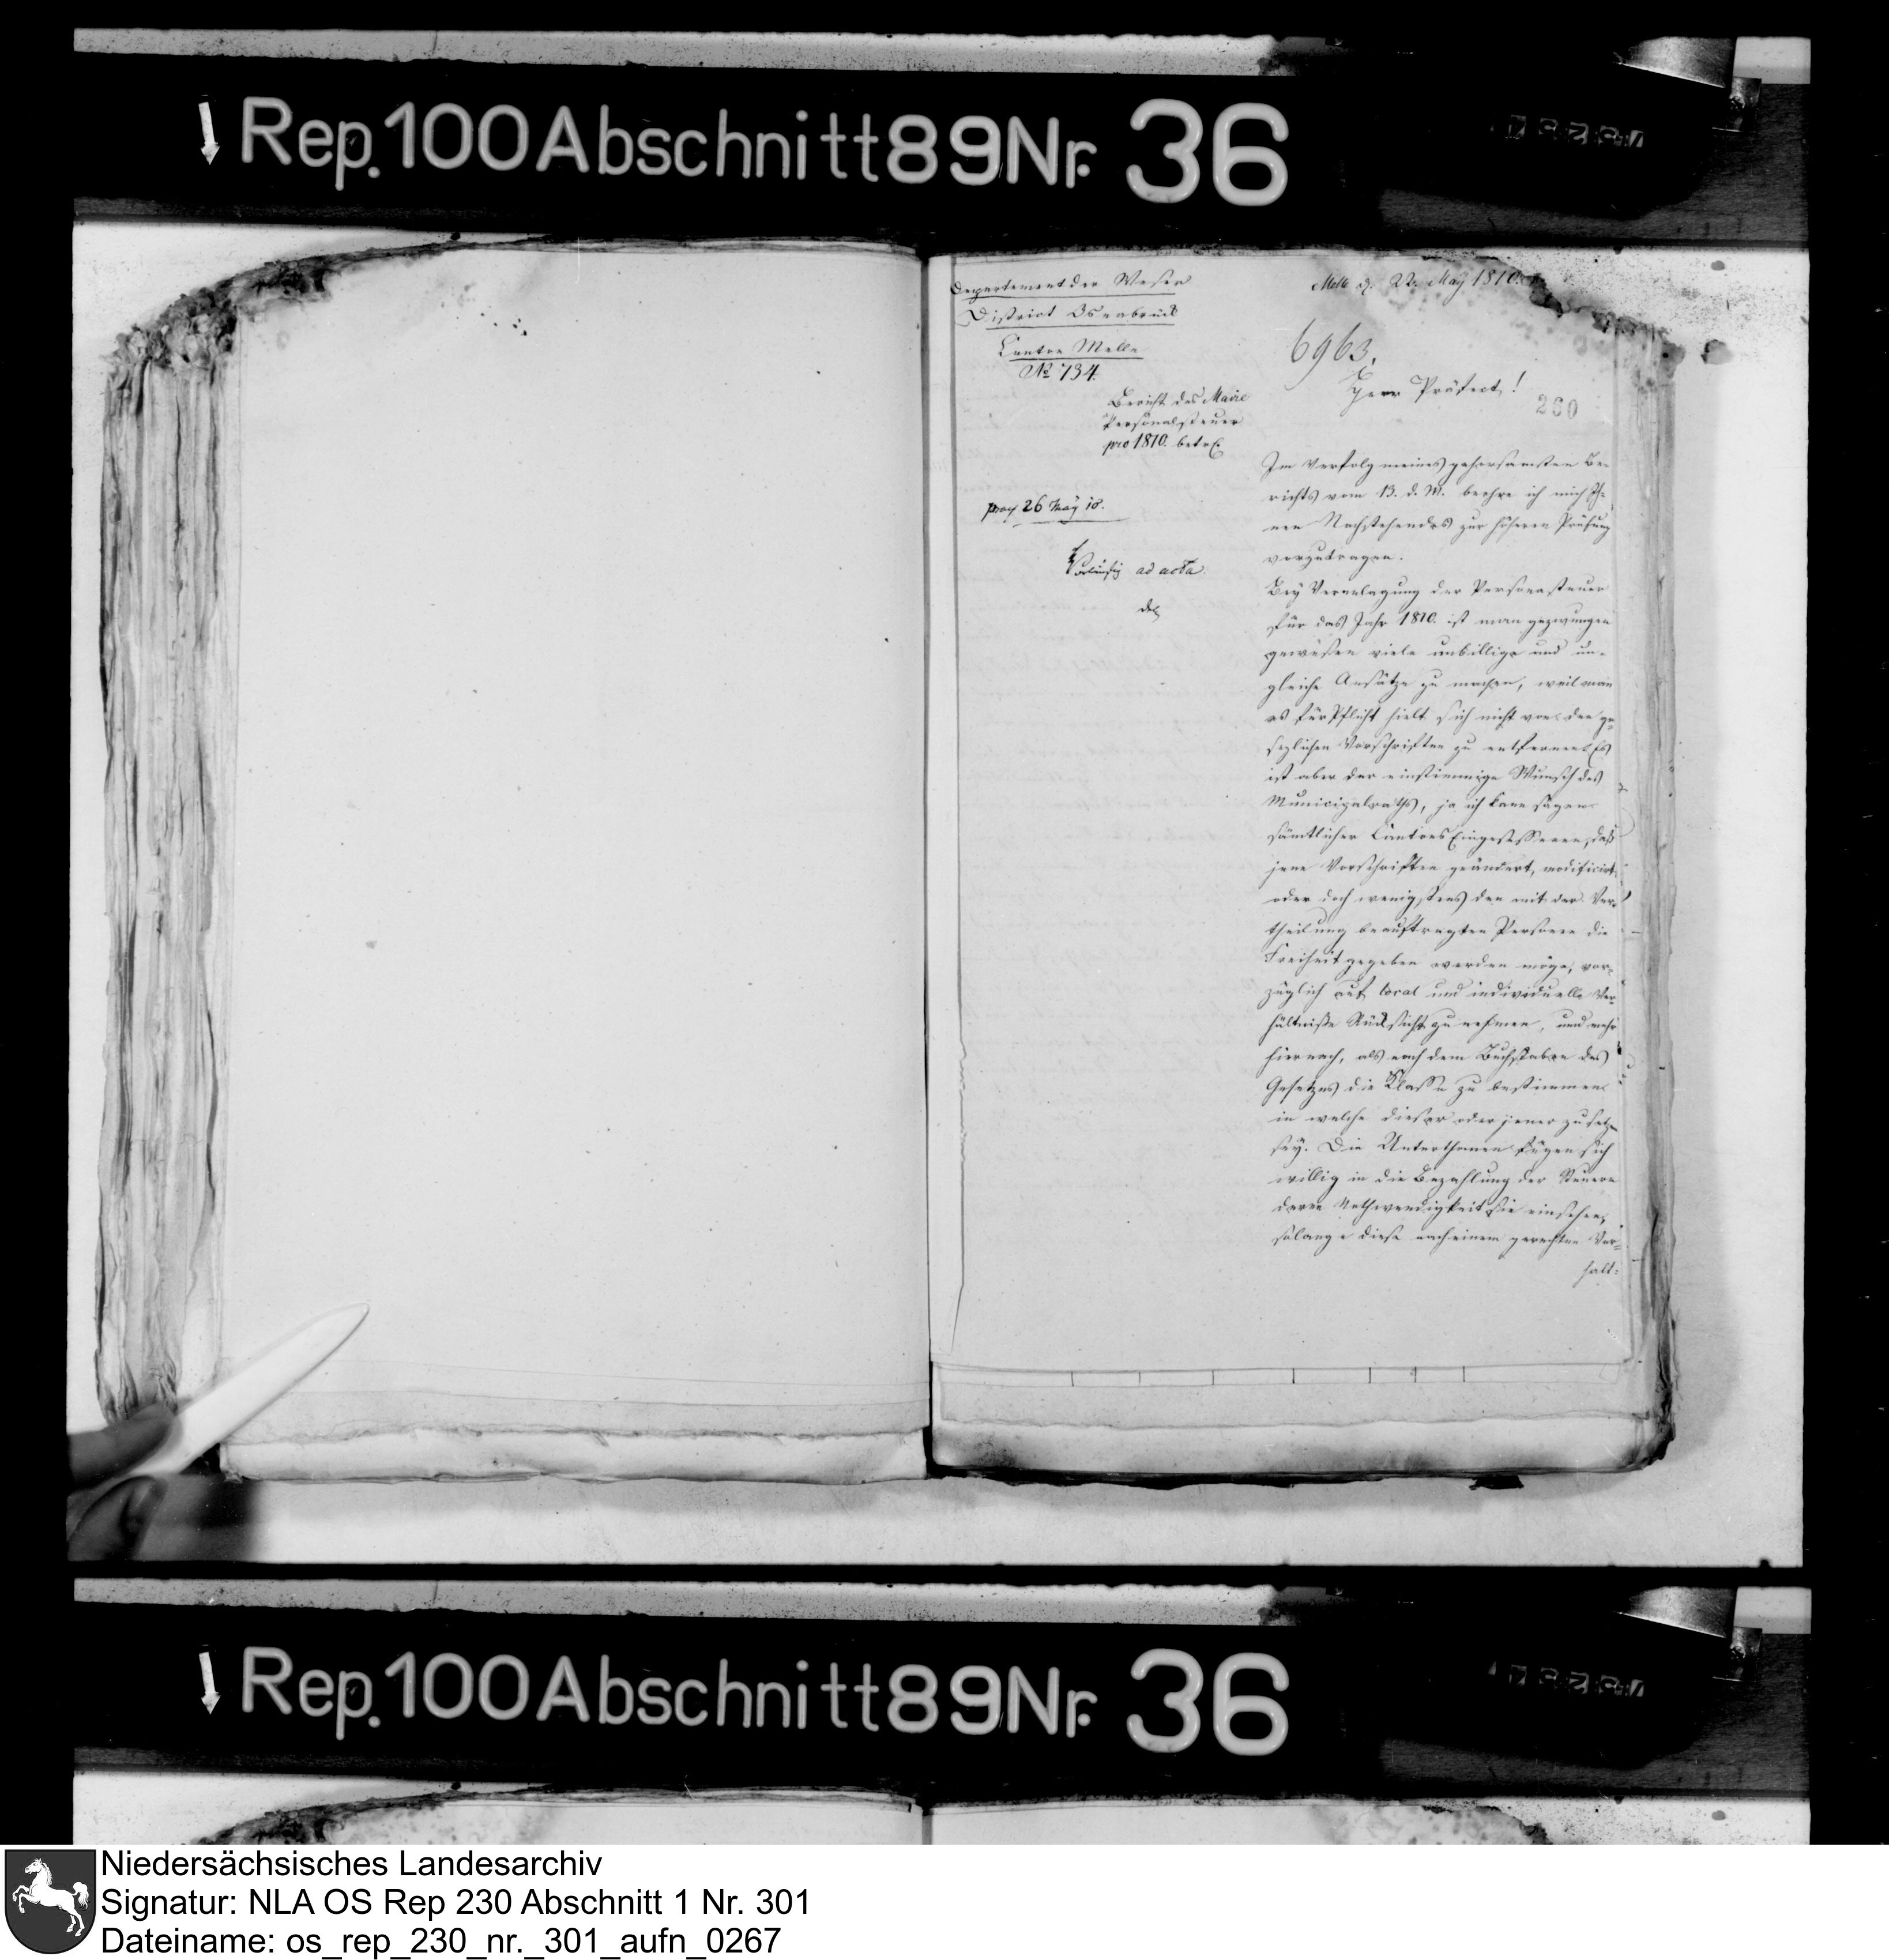 Rep. 100 Abschnitt 89 Nr. 36
Departement der Weser
District Osnabrück
Canton Melle
No 734.
Bericht des Maire
Personalsteuer
pro 1810. betr.
26 May 10.
Vorläufig ad acta.
Melle d. 22. May 1810.
6963.
Herr Präfect!
260
Im Verfolg meines gehorsamsten Be-
richts vom 13. d. M. beehre ich mich Ih-
nen Nachstehendes zur höheren Prüfung
vorzutragen.
Bey Veranlagung der Personasteuer
für das Jahr 1810. ist man gezwungen
gewesen viele unbillige und un-
gleiche Ansätze zu machen, weil man
es für Pflicht hielt sich nicht von den ge-
sezlichen Vorschriften zu entfernen. Es
ist aber der einstimmige Wunsch des
Municipalraths, ja ich kann sagen
sämtlicher Cantons Eingesessenen, daß
jene Vorschriften geändert, modificirt
oder doch wenigstens den mit der Ver-
theilung beauftragten Personen die
Freiheit gegeben werden möge, vor-
züglich auf local und individuelle Ver-
hältniße Rücksicht zu nehmen, und mehr
hiernach, als nach dem Buchstaben des
Gesetzes die Klasse zu bestimmen
in welche dieser oder jener zu setzen
sey. Die Unterthanen fügen sich
willig in die Bezahlung der Steuern
deren Nothwendigkeit sie einsehen,
solange diese nach einem gerechten Ver-
hält-
Rep. 100 Abschnitt 89 Nr. 36
Niedersächsisches Landesarchiv
Signatur: NLA OS Rep 230 Abschnitt 1 Nr. 301
Dateiname: os_rep_230_nr._301_aufn_0267